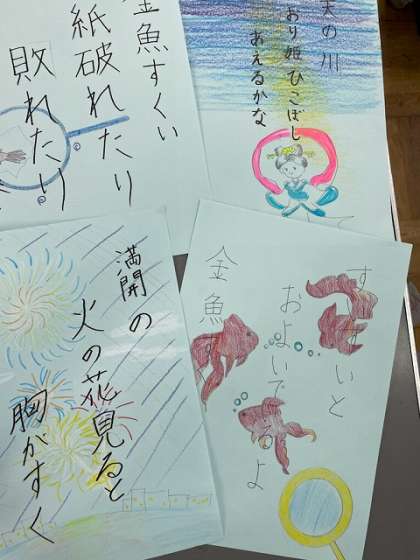 金魚すくい
紙破れたり
敗れたり
天の川
おり姫ひこぼし
あえるかな
満開の
火の花見ると
胸がすく
いと
およいでるよ
金魚